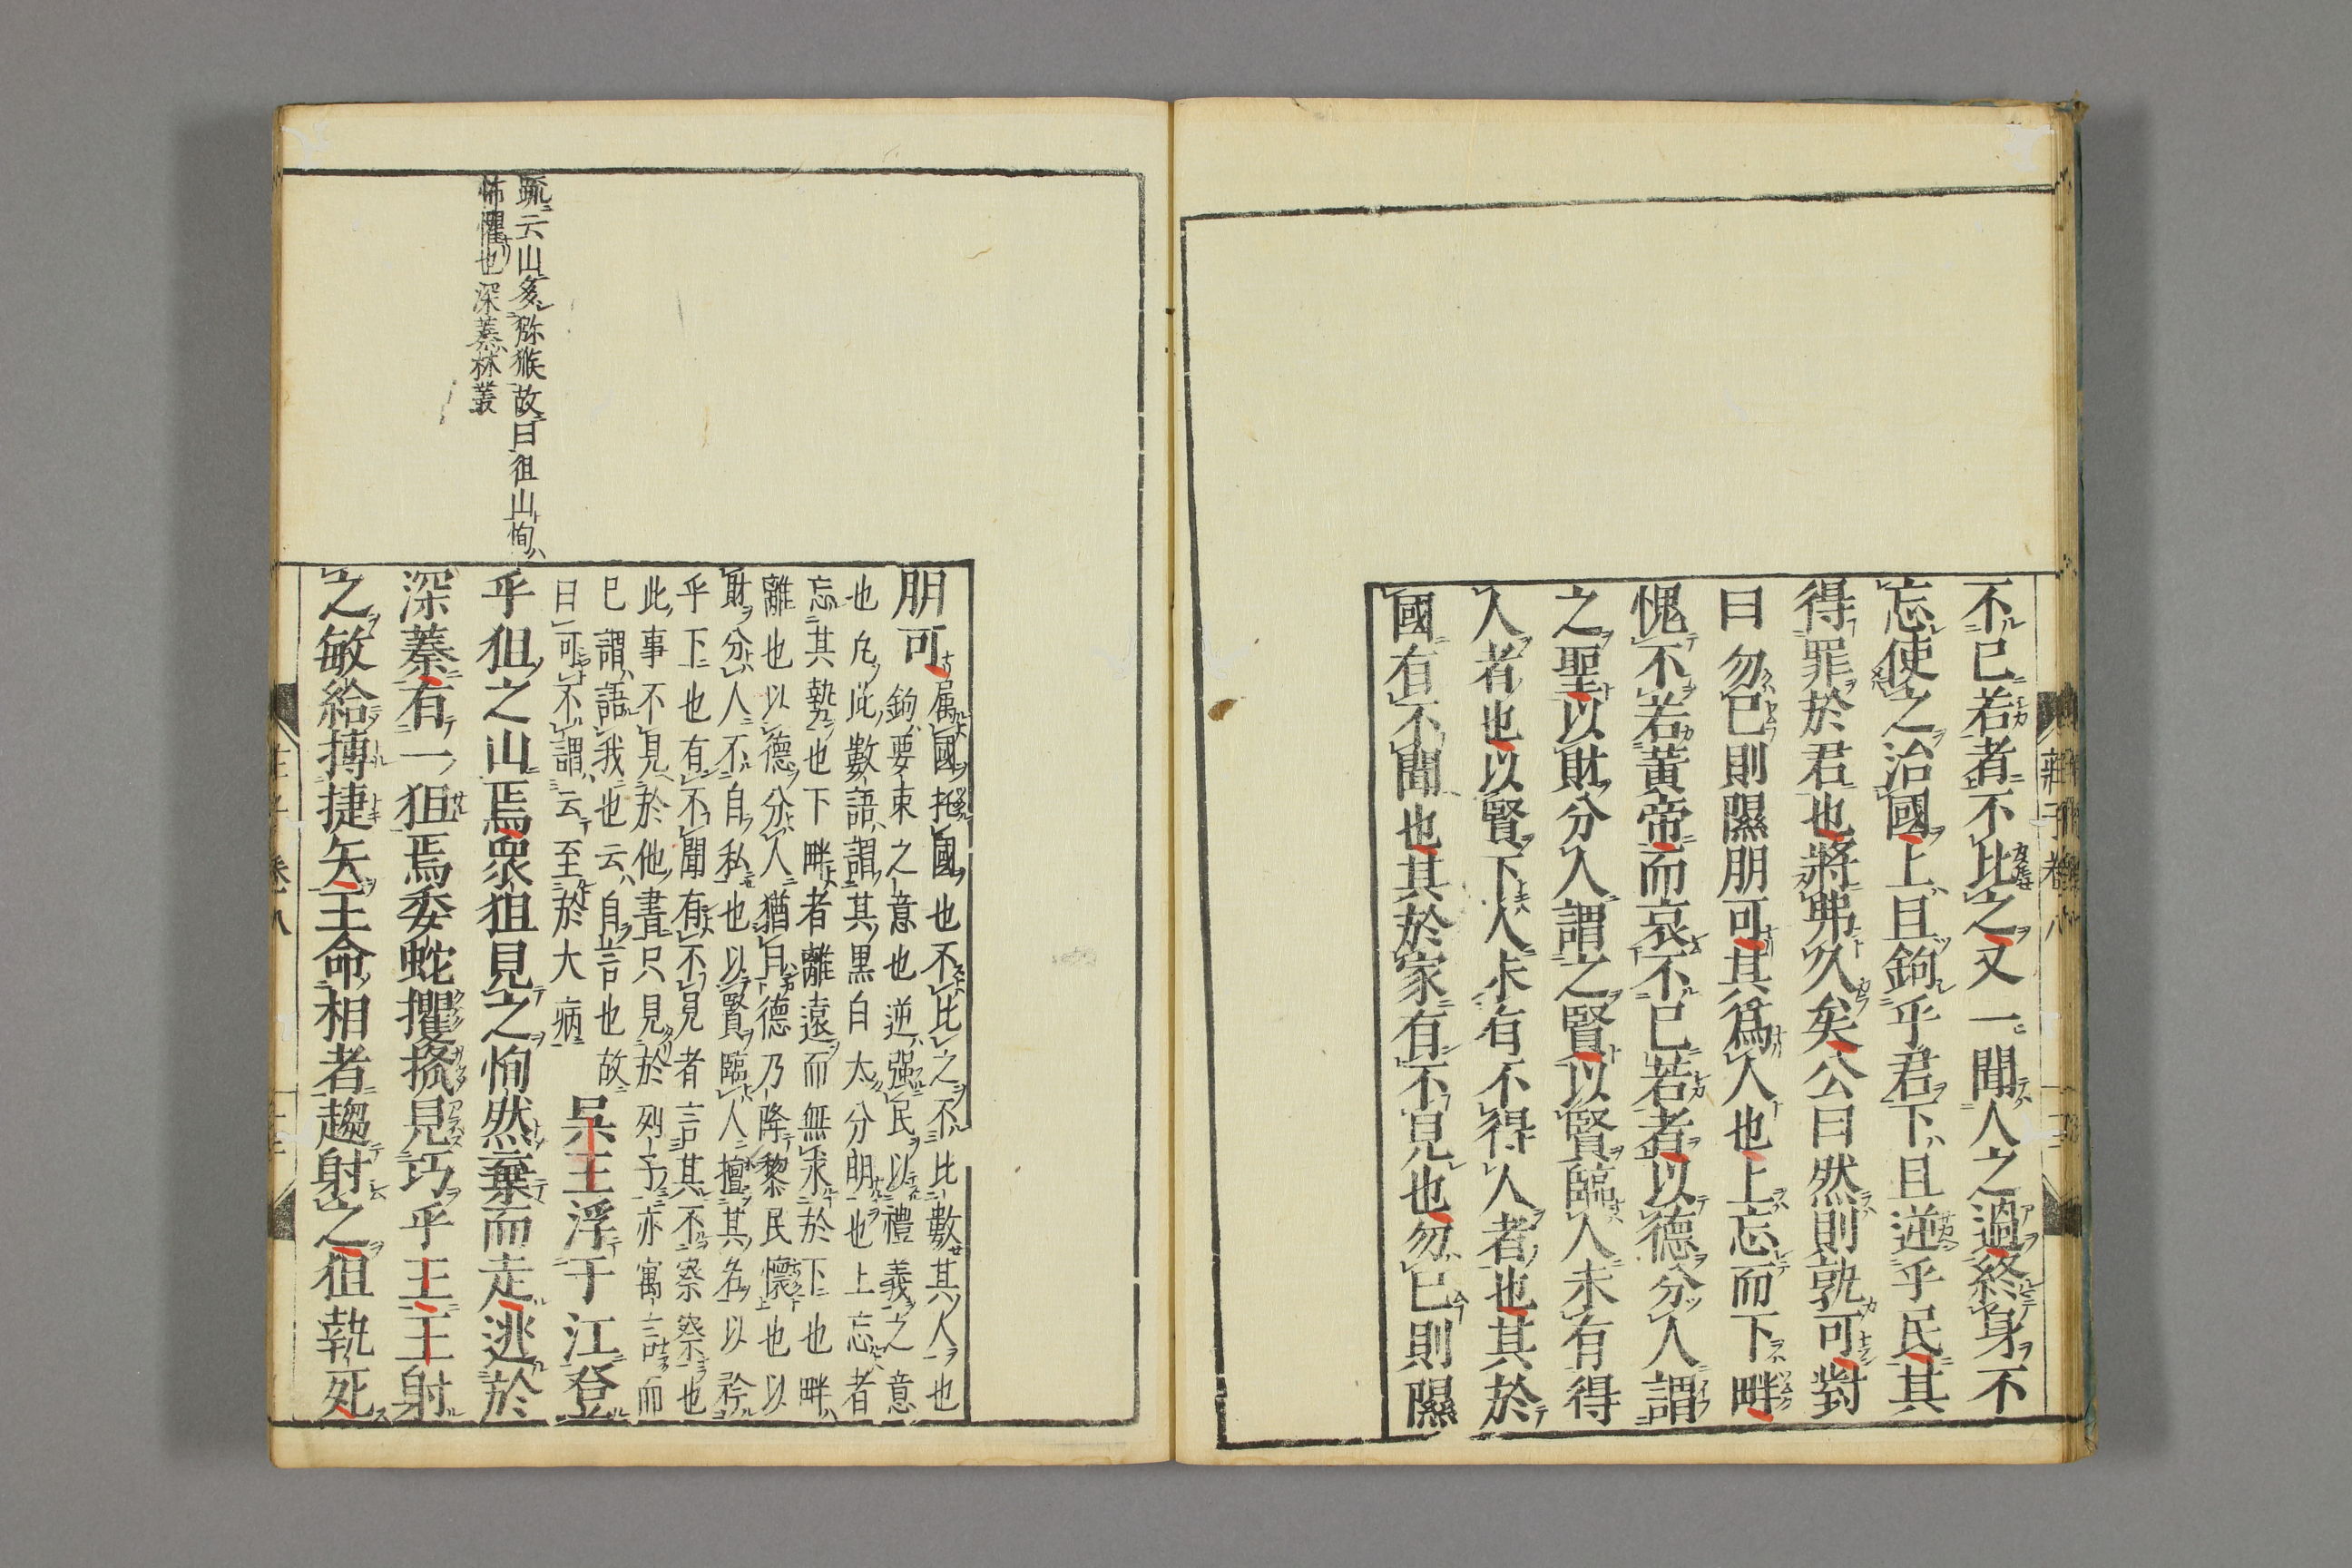 不已若者不比之又一聞人之過終身不
忘使之治國上且鉤乎君下且逆乎民其
得罪於君也將弗久矣公曰然則孰可對
曰勿已則隰朋可其為人也上忘而下畔
愧不若黃帝而哀不已若者以德分人謂
之聖以財分人謂之賢以賢臨人未有得
人者也以賢下人未有不得人者也其於
國有不聞也其於家有不見也勿已則隰
朋可
属國托國也不比之不比數其人也
鉤要束之意也逆强民以禮義之意
也凢此數語謂其黑白太分明也上忘者
忘其勢也下畔者離遠而無求於下也畔
離也以德分人猶曰德乃降黎民懷也以
財分人不自私也以賢臨人擅其名以矜
乎下也有不聞有不見者言其不察察也
此事不見於他書只見於列子亦寓言而
已謂語我也云自言也故
曰可不謂云至於大病
吳王浮于江登
乎狙之山焉衆狙見之恂然棄而走逃於
深蓁有一狙焉委蛇攫搔見巧乎王王射
之敏給搏捷矢王命相者趨射之狙執死
疏云山多猕猴故曰狙山恂
怖懼也深蓁林叢
莊子 卷八